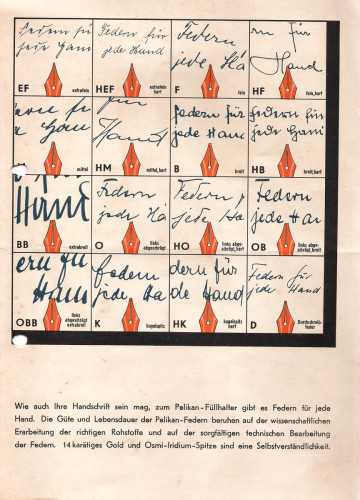 Federn fü
jede Hand
EF
extrafein
Federn für
jede Hand
HEF
extrafein, hart
Federn
jede Ha
F
fein
rn für
Hand
HF
fein, hart
jede Han
mittel
für
Hand
HM
mittel, hart
Federn für
jede Hand
B
breit
Federn für
jede Hand
HB
breit, hart
Hand
BB
extrabreit
Federn
jede Ha
O
links abgeschrägt
Federn f
jede Ha
HO
links abge-
schrägt, hart
Federn
jede Han
OB
links abge-
schrägt, breit
ern fü
Hand
OBB
links
abgeschrägt
extrabreit
Federn
jede Ha
K
kugelspitz
dern für
de Hand
HK
kugelspitz,
hart
Federn für
jede Hand
D
Durchschreib-
feder
Wie auch Ihre Handschrift sein mag, zum Pelikan-Füllhalter gibt es Federn für jede
Hand. Die Güte und Lebensdauer der Pelikan-Federn beruhen auf der wissenschaftlichen
Erarbeitung der richtigen Rohstoffe und auf der sorgfältigen technischen Bearbeitung
der Federn. 14 karätiges Gold und Osmi-Iridium-Spitze sind eine Selbstverständlichkeit.